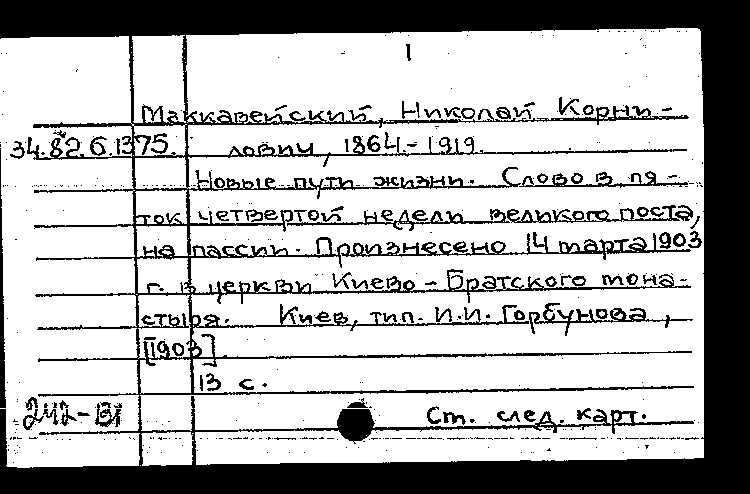 1
Маккавейский, Николай Корни-
34.82.6.1375. лович, 1864-1919.
Новые пути жизни. Слово в пя-
ток четвертой недели великого поста,
на пассии. Произнесено 14 марта 1903
г. в церкви Киево-Братского мона-
стыря. Киев, тип. И.И. Горбунова,
[1903].
13 с.
Ст. след. карт.